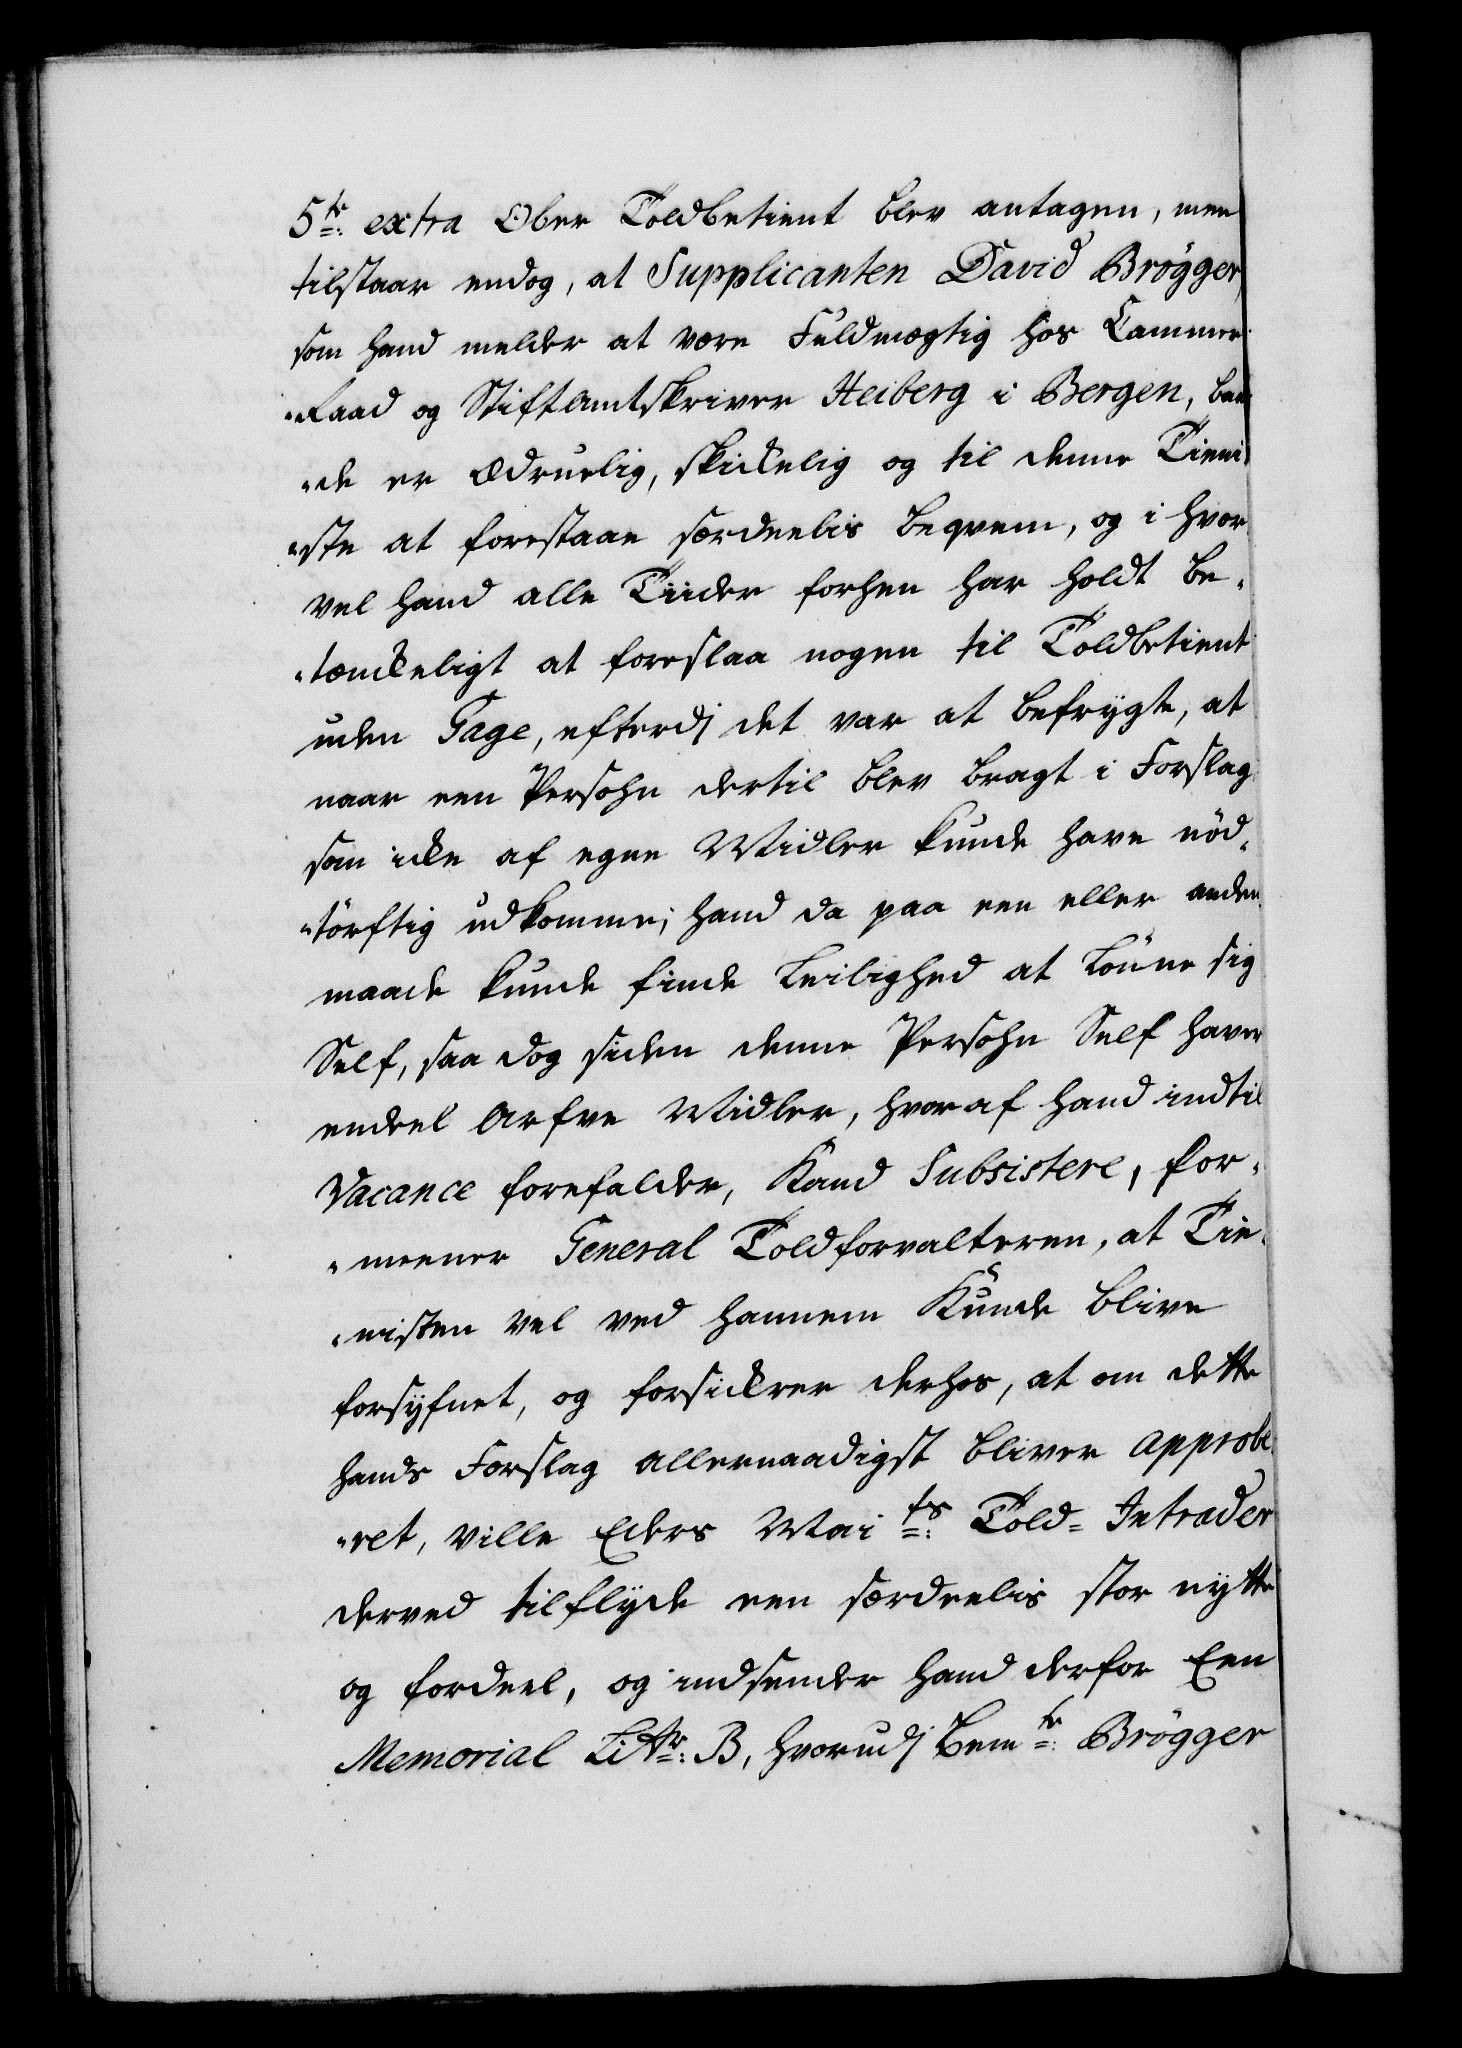 5te: extra Ober Toldbetient blev antagen, men
tilstaar endog, at Supplicanten David Brøgger,
som hand melder at være Fuldmægtig hos Cammer-
-Raad og Stiftamtskriver Heiberg i Bergen, baa-
-de er ædruelig, skickelig og til denne Tieni-
-ste at forestaae særdeelis beqvem, og i hvor-
vel hand alle Tiider forhen har holdt be-
-tænckeligt at foreslaa nogen til Toldbetient
uden Gage, efterdj det var at befrygte, at
naar een Persohn dertil blev bragt i Forslag
som icke af egne Midler kunde have nød-
-tørftig udkomme; hand da paa een eller anden
maade kunde finde Leilighed at Lønne sig
Self, saa dog siden denne Persohn Self haver
endeel Arfve Midler, hvoraf hand indtil
Vacance forefalder, Kand Subsistere, for-
-meener General Toldforvalteren, at Tie-
-nisten vel ved hannem Kunde blive
forsyfnet, og forsickrer derhos, at om dette
hands Forslag allernaadigst bliver approbe-
-ret, ville Eders Maits: Told-Intrader
derved tilflyde een særdeelis stor nytte
og fordeel, og indsender hand derfor Een
Memorial Littr: B, hvorudj bemte: Brøgger